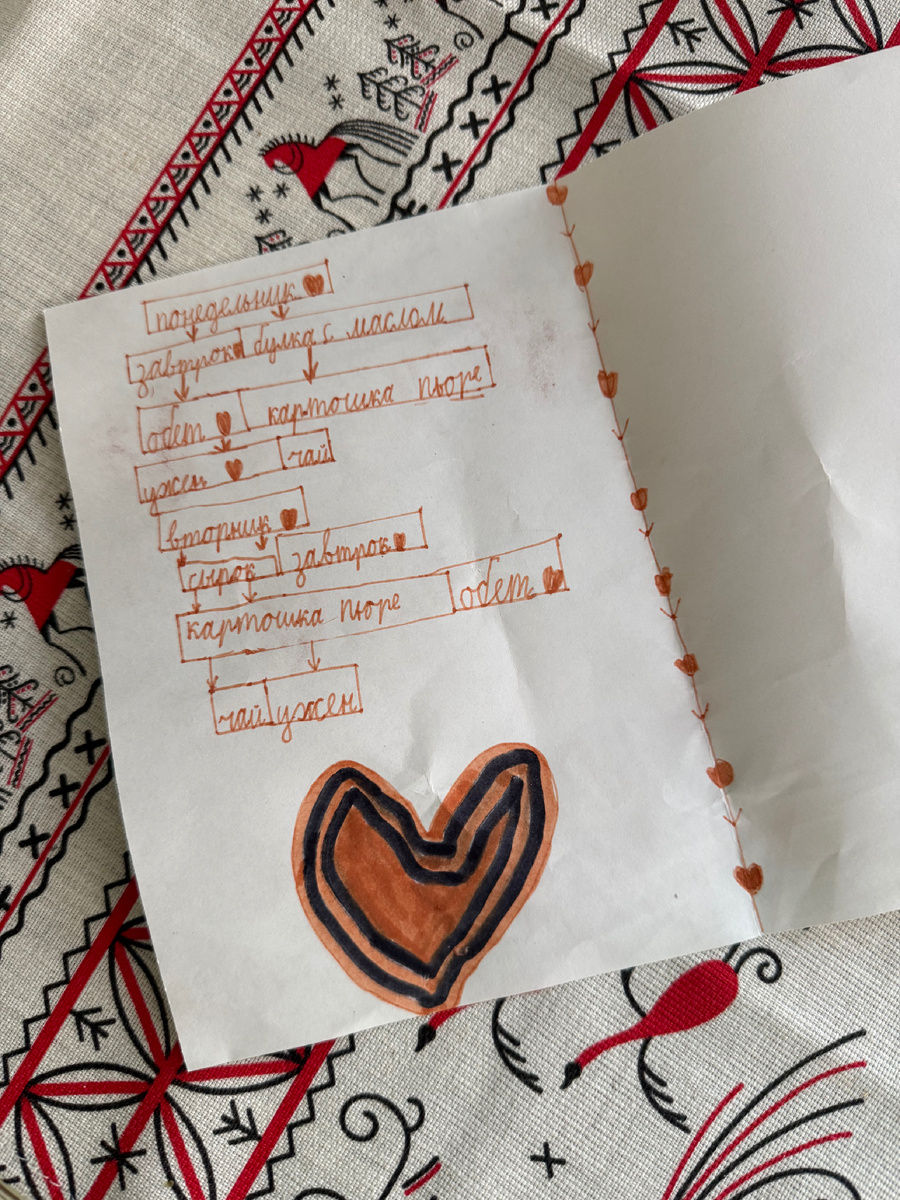 понедельник
завтрок булка с маслом
обет картошка пюре
ужен чай
вторник
сырок завтрок
картошка пюре обет
чай ужен